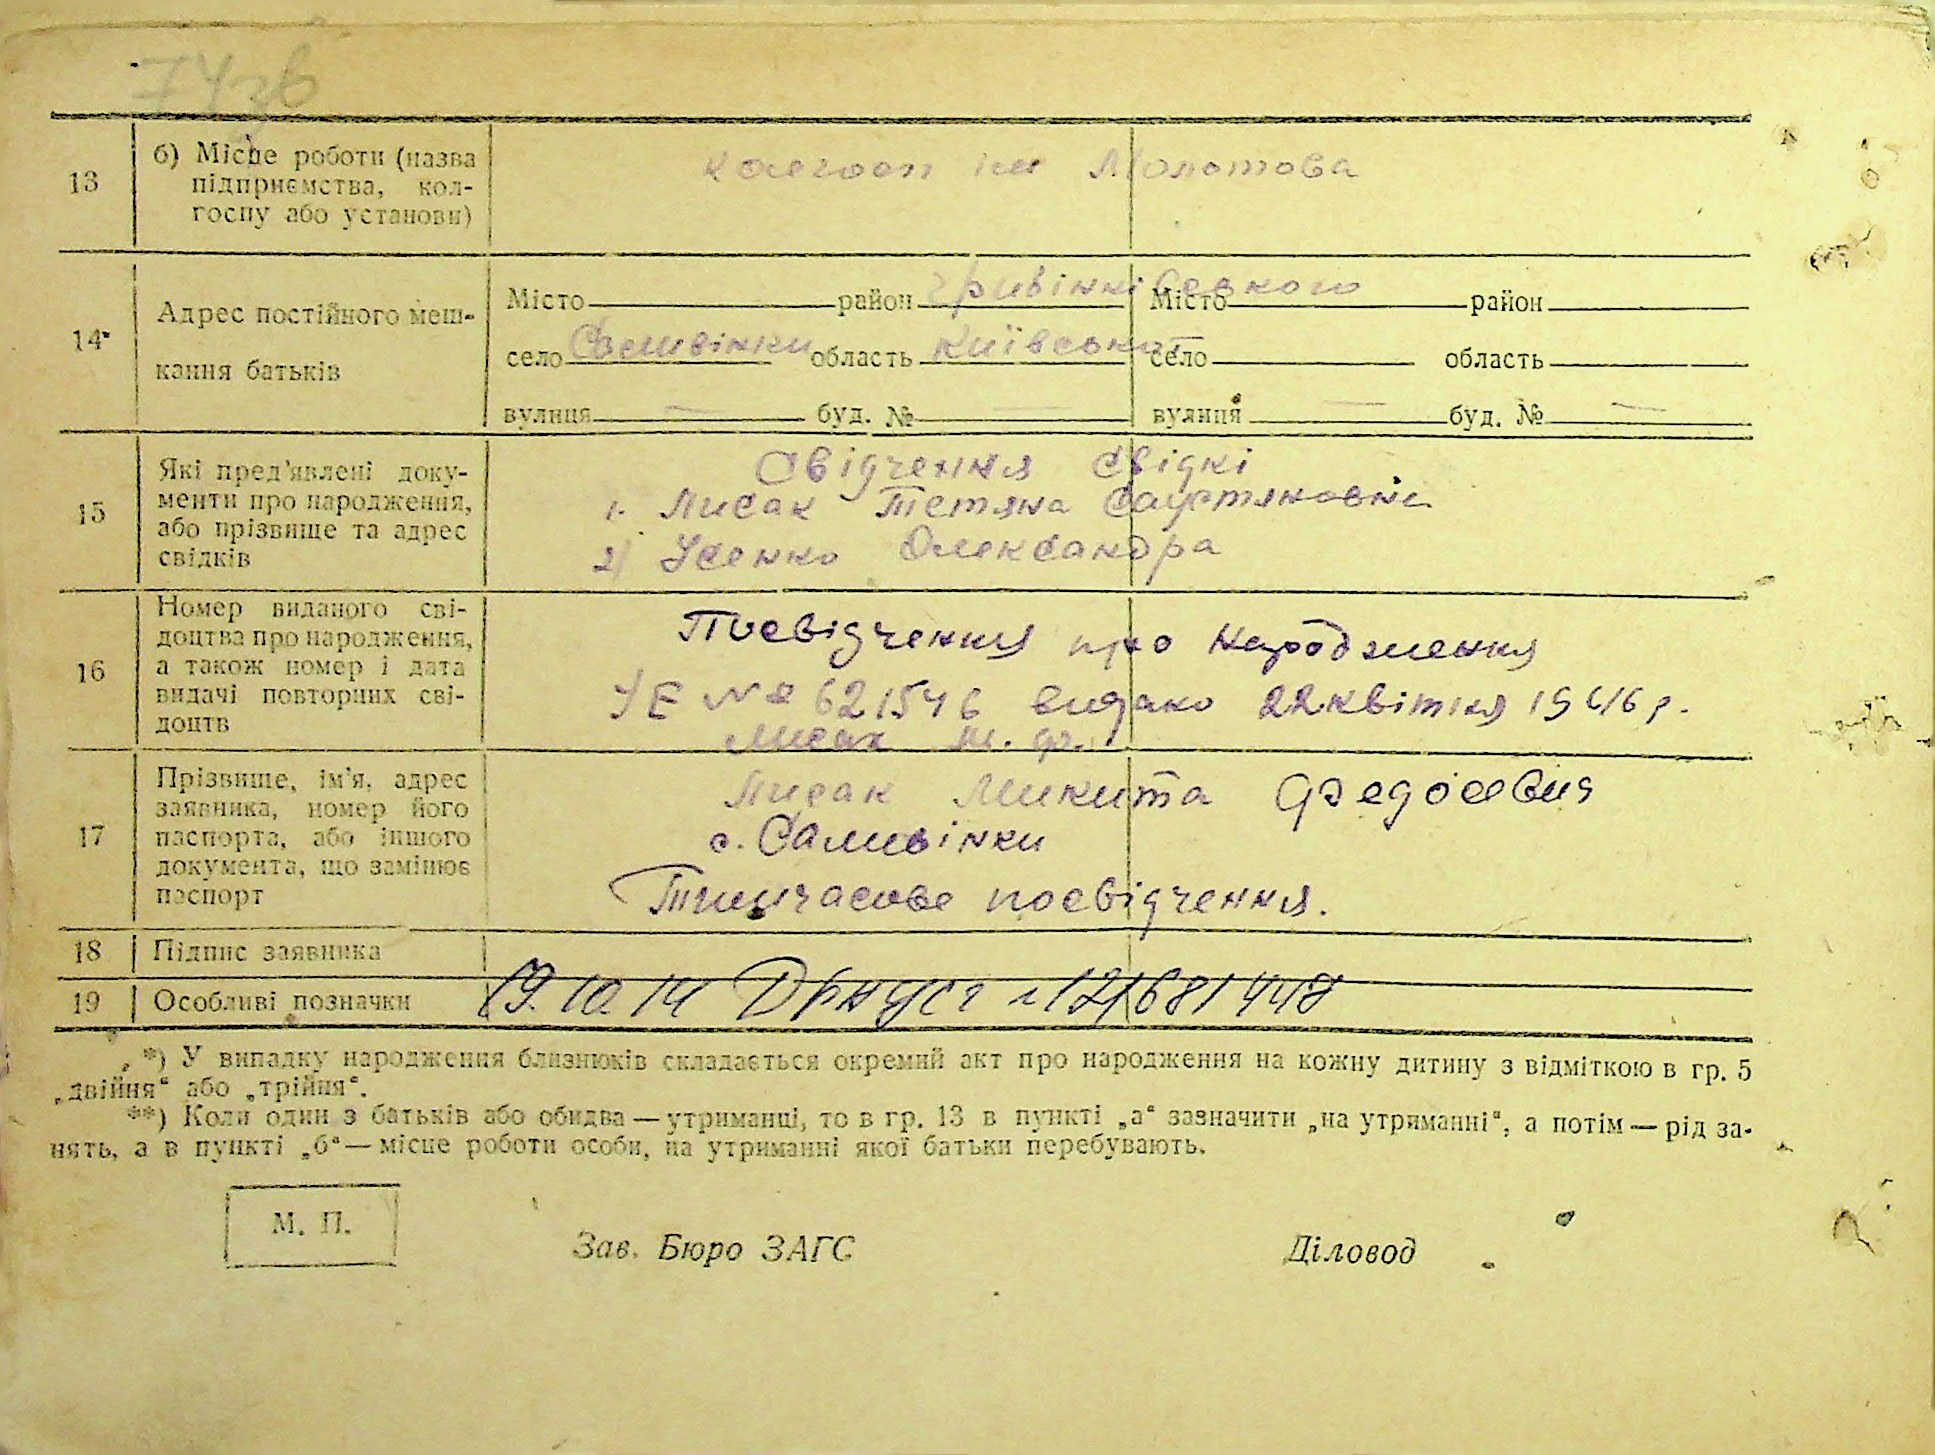 74зв
13
б) Місце роботи (назва
підприємства, кол-
госпу або установи)
колгосп ім Молотова
14
Адрес постійного меш-
кання батьків
Місто район Місто район
село Саливінки область Київської село область
вулиця — буд. № вулиця — буд. № —
15
Які пред'явлені доку-
менти про народження,
або прізвище та адрес
свідків
Свідчення свідкі
1. Лисак Тетяна
2) Усенко Олександра
16
Номер виданого сві-
доцтва про народження,
а також номер і дата
видачі повторних сві-
доцтв
Посвідчення про народження
УЕ № 621546 видано 22 квітня 1946 р.
Лисак м. ф.
17
Прізвище, ім'я, адрес
заявника, номер його
паспорта, або іншого
документа, що замінює
паспорт
Лисак Микита Федосович
с. Саливінки
Тимчасове посвідчення.
18
Підпис заявника
19
Особливі позначки
19.10.14
*) У випадку народження близнюків складається окремий акт про народження на кожну дитину з відміткою в гр. 5
„двійня“ або „трійня“.
**) Коли один з батьків або обидва — утриманці, то в гр. 13 в пункті „а“ зазначити „на утриманні“, а потім — рід за-
нять, а в пункті „б“ — місце роботи особи, на утриманні якої батьки перебувають.
М. П.
Зав. Бюро ЗАГС
Діловод